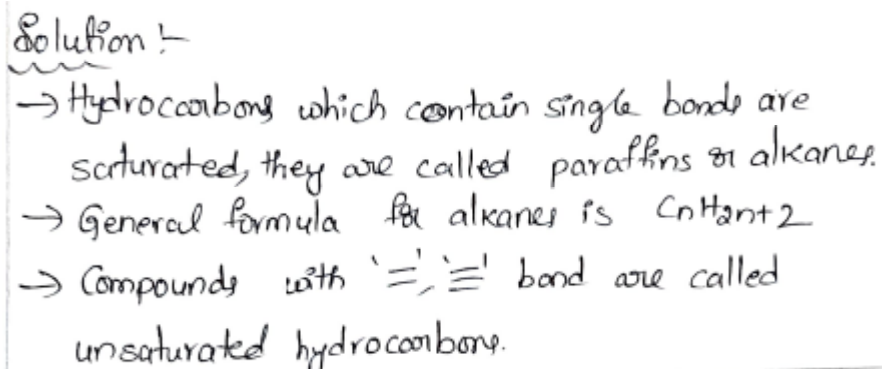 Solution :-
→ Hydrocarbons which contain single bonds are
saturated, they are called paraffins or alkanes.
→ General formula for alkanes is CnH2n+2
→ Compounds with '=', '≡' bond are called
unsaturated hydrocarbons.